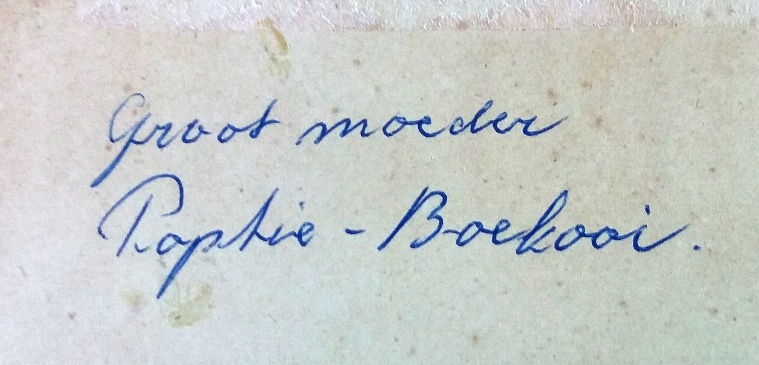 Groot moeder
Poptie - Boekooi.